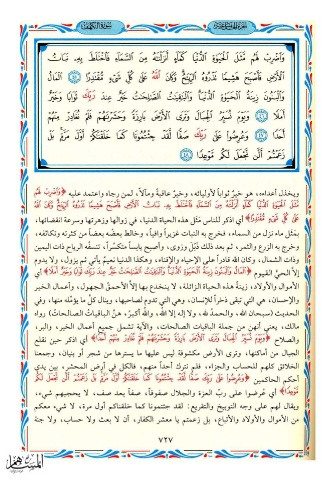 وَاضْرِبْ لَهُم مَّثَلَ الْحَيَوٰةِ الدُّنْيَا كَمَآءٍ أَنزَلْنَٰهُ مِنَ السَّمَآءِ فَاخْتَلَطَ بِهِۦ نَبَاتُ
الْأَرْضِ فَأَصْبَحَ هَشِيمًا تَذْرُوهُ الرِّيَٰحُ وَكَانَ اللَّهُ عَلَىٰ كُلِّ شَىْءٍ مُّقْتَدِرًا ﴿٤٥﴾ الْمَالُ
وَالْبَنُونَ زِينَةُ الْحَيَوٰةِ الدُّنْيَا وَالْبَٰقِيَٰتُ الصَّٰلِحَٰتُ خَيْرٌ عِندَ رَبِّكَ ثَوَابًا وَخَيْرٌ
أَمَلًا ﴿٤٦﴾ وَيَوْمَ نُسَيِّرُ الْجِبَالَ وَتَرَى الْأَرْضَ بَارِزَةً وَحَشَرْنَٰهُمْ فَلَمْ نُغَادِرْ مِنْهُمْ
أَحَدًا ﴿٤٧﴾ وَعُرِضُوا۟ عَلَىٰ رَبِّكَ صَفًّا لَّقَدْ جِئْتُمُونَا كَمَا خَلَقْنَٰكُمْ أَوَّلَ مَرَّةٍ بَلْ
زَعَمْتُمْ أَلَّن نَّجْعَلَ لَكُم مَّوْعِدًا ﴿٤٨﴾
ويخذل أعداءه، هو خيرٌ ثواباً لأوليائه، وخيرٌ عاقبةً ومآلاً، لمن رجاه واعتمد عليه ﴿وَاضْرِبْ لَهُم
مَّثَلَ الْحَيَوٰةِ الدُّنْيَا كَمَآءٍ أَنزَلْنَٰهُ مِنَ السَّمَآءِ فَاخْتَلَطَ بِهِۦ نَبَاتُ الْأَرْضِ فَأَصْبَحَ هَشِيمًا تَذْرُوهُ الرِّيَٰحُ وَكَانَ اللَّهُ
عَلَىٰ كُلِّ شَىْءٍ مُّقْتَدِرًا﴾ أي اذكر للناس مَثَل هذه الحياة الدنيا، في زوالها وزهرتها وسرعة انقضائها،
بمَثَل ماء نزل من السماء، فخرج به النبات غزيراً وافياً، وخالط بعضه بعضاً من كثرته وتكاثفه،
وخرج به الزرع والثمر، ثم بعد ذلك ذَبُل وزوى، وأصبح يابساً متكسِّراً، تنسفُه الرياح ذات اليمين
وذات الشمال، وكان الله قادراً على الإحياء والإفناء، وهكذا الدنيا نعيمٌ يأتي ثم يزول، ولا يدوم
إلاَّ الحيُّ القيوم ﴿الْمَالُ وَالْبَنُونَ زِينَةُ الْحَيَوٰةِ الدُّنْيَا وَالْبَٰقِيَٰتُ الصَّٰلِحَٰتُ خَيْرٌ عِندَ رَبِّكَ ثَوَابًا وَخَيْرٌ أَمَلًا﴾ أي
الأموال والأولاد، زينةُ هذه الحياة الزائلة، لا ينخدع بها إلاَّ الأحمقُ الجهول، وأعمال الخير
والإحسان، هي التي تبقى ذخراً للإنسان، وهي التي تدوم لصاحبها، وينال كلَّ ما يؤمِّله منها، وفي
الحديث (سبحان الله، والحمدُ لله، ولا إله إلا الله، واللهُ أكبرُ، هنَّ الباقياتُ الصالحاتُ) رواه
مالك، يعني أنهن من جملة الباقيات الصالحات، والآية تشمل جميع أعمال الخير، والبر،
والصلاح ﴿وَيَوْمَ نُسَيِّرُ الْجِبَالَ وَتَرَى الْأَرْضَ بَارِزَةً وَحَشَرْنَٰهُمْ فَلَمْ نُغَادِرْ مِنْهُمْ أَحَدًا﴾ أي اذكر حين نقلع
الجبال من أماكنها، وترى الأرض مكشوفة ليس عليها ما يسترها من شجر أو بنيان، وجمعنا
الخلائق كلهم للحساب والجزاء، فلم نترك أحداً منهم، فالكل في أرض المحشر، بين يدي
أحكم الحاكمين ﴿وَعُرِضُوا۟ عَلَىٰ رَبِّكَ صَفًّا لَّقَدْ جِئْتُمُونَا كَمَا خَلَقْنَٰكُمْ أَوَّلَ مَرَّةٍ بَلْ زَعَمْتُمْ أَلَّن نَّجْعَلَ لَكُم
مَّوْعِدًا﴾ أي عُرضوا على ربِّ العزة والجلال صفوفاً، صفاً بعد صف، لا يحجبهم شيء،
ويقال لهم على وجه التوبيخ والتقريع: لقد جئتمونا كما خلقناكم أول مرة، لا شيء معكم
من الأموال والأولاد والأتباع، بل زعمتم يا معشر الكفار، أن لا بعث ولا حساب، ولا جنة
٧٢٧